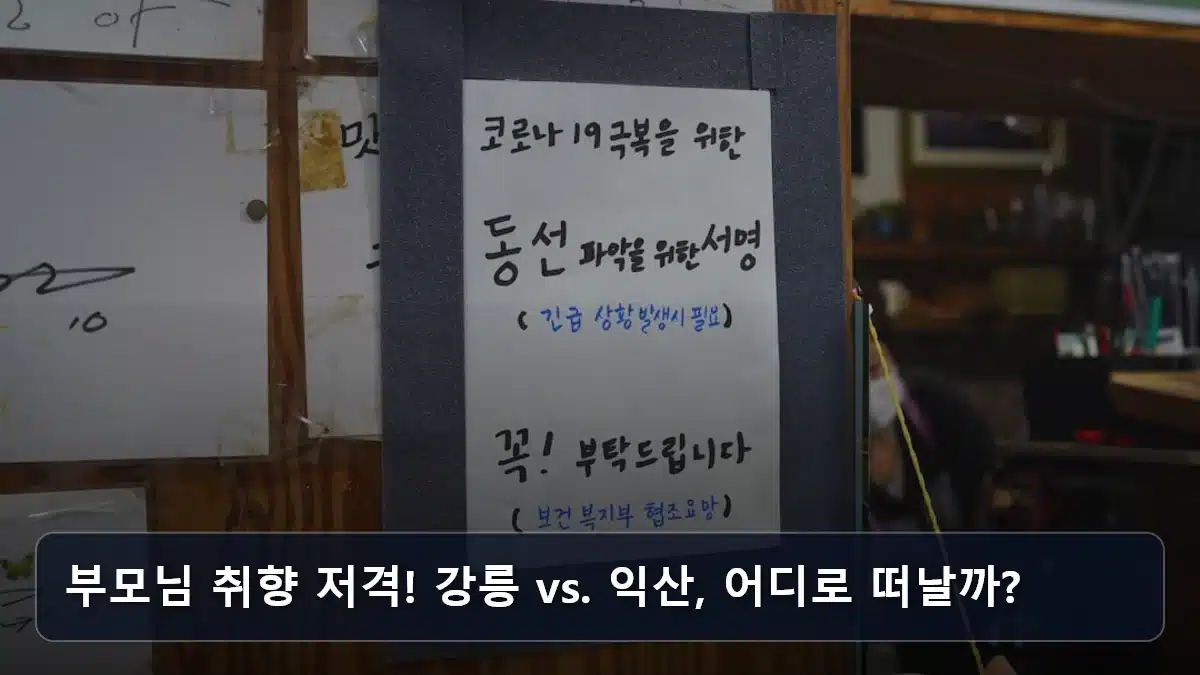 맛
10
코로나 19 극복을 위한
동선 파악을 위한 서명
( 긴급 상황 발생시 필요)
꼭! 부탁드립니다
( 보건복지부 협조요망)
부모님 취향 저격! 강릉 vs. 익산, 어디로 떠날까?